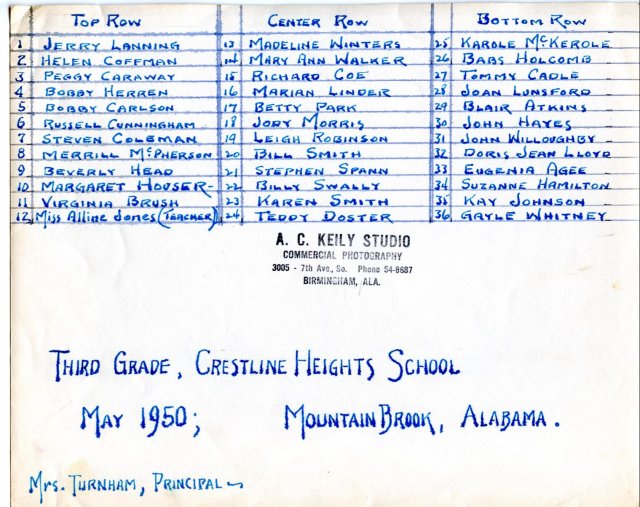 Top Row Center Row Bottom Row
1 Jerry Lanning 13 Madeline Winters 25 Karole McKerole
2 Helen Coffman 14 Mary Ann Walker 26 Babs Holcomb
3 Peggy Caraway 15 Richard Coe 27 Tommy Cadle
4 Bobby Herren 16 Marian Linder 28 Joan Lunsford
5 Bobby Carlson 17 Betty Park 29 Blair Atkins
6 Russell Cunningham 18 Jody Morris 30 John Hayes
7 Steven Coleman 19 Leigh Robinson 31 John Willoughby
8 Merrill McPherson 20 Bill Smith 32 Doris Jean Lloyd
9 Beverly Head 21 Stephen Spann 33 Eugenia Agee
10 Margaret Houser 22 Billy Swally 34 Suzanne Hamilton
11 Virginia Brush 23 Karen Smith 35 Kay Johnson
12 Miss Alline Jones (Teacher) 24 Teddy Doster 36 Gayle Whitney
A. C. KEILY STUDIO
COMMERCIAL PHOTOGRAPHY
3005 - 7th Ave., So. Phone 54-8687
BIRMINGHAM, ALA.
Third Grade, Crestline Heights School
May 1950; Mountain Brook, Alabama.
Mrs. Turnham, Principal